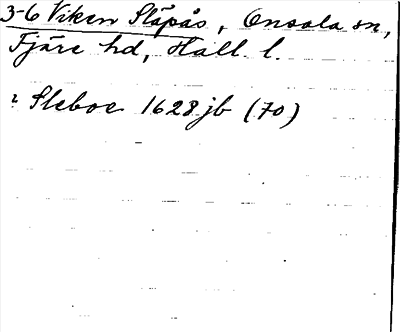 3-6 Viken Släpås, Onsala sn,
Fjäre hd, Hall. l.
? Sleboe 1628 jb (70)